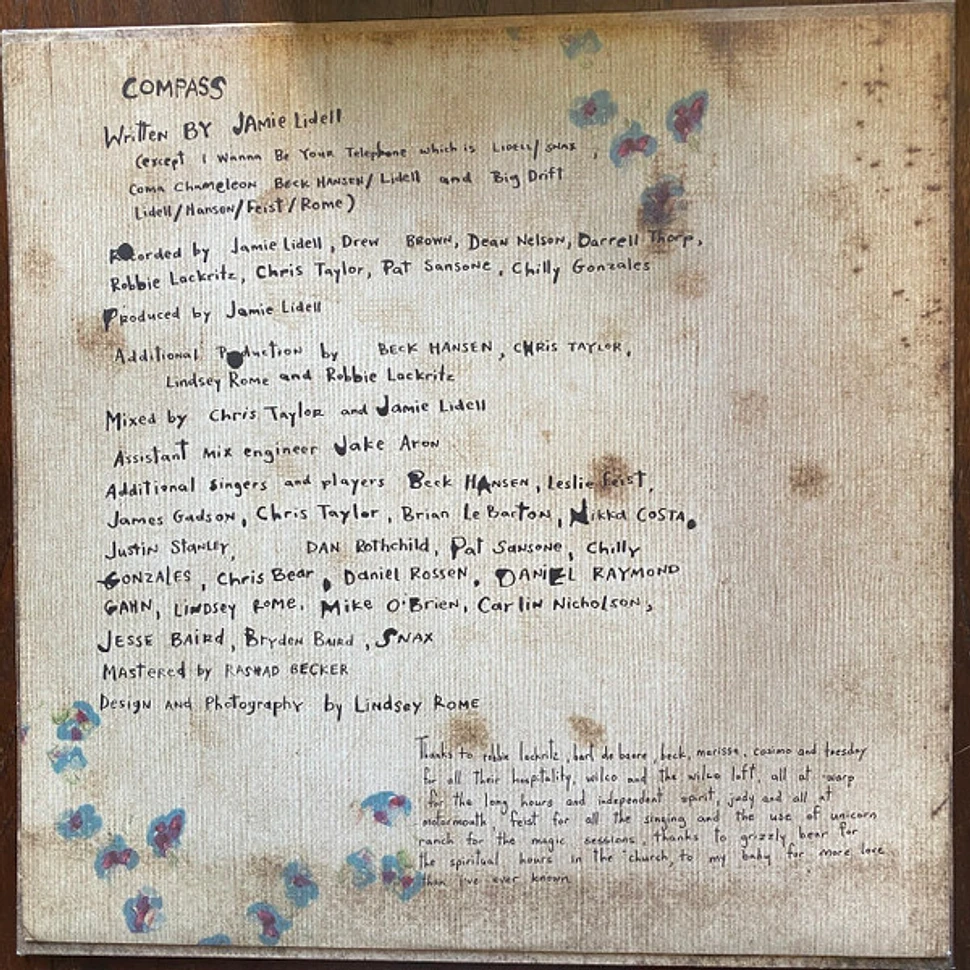 COMPASS
Written BY JAMie Lidell
(except I Wanna Be Your Telephone which is LIDELL/SNAX ,
Coma Chameleon BECK HANSEN/Lidell and Big Drift
Lidell/Hanson/Feist/Rome)
Recorded by Jamie Lidell, Drew BROWN, Dean Nelson, Darrell Thorp,
Robbie Lackritz, Chris Taylor, Pat Sansone, Chilly Gonzales
Produced by Jamie Lidell
Additional Production by BECK HANSEN, CHRis TAYLOR,
Lindsey Rome and Robbie Lackritz
Mixed by Chris Taylor and Jamie Lidell
Assistant Mix engineer Jake Aron
Additional singers and players Beck HANSEN, Leslie Feist,
James Gadson, Chris Taylor, Brian Le Barton, Nikka COSTA,
Justin Stanley, DAN Rothchild, Pat Sansone, Chilly
GONZALES, Chris Bear, Daniel Rossen, DANIEL RAYMOND
GAHN, Lindsey Rome, Mike O'Brien, Carlin Nicholson,
JESSE BAIRD, Bryden Baird, SNAX
MAStered by RASHAD BECKER
Design AND Photography by Lindsey ROME
Thanks to robbie lackritz, bart de baere, beck, marissa, cosimo and tuesday
for all their hospitality, wilco and the wilco loft, all at warp
for the long hours and independent spirit, judy and all at
motormouth feist for all the singing and the use of unicorn
ranch for the magic sessions, thanks to grizzly bear for
the spiritual hours in the church, to my baby for more love
than i've ever known